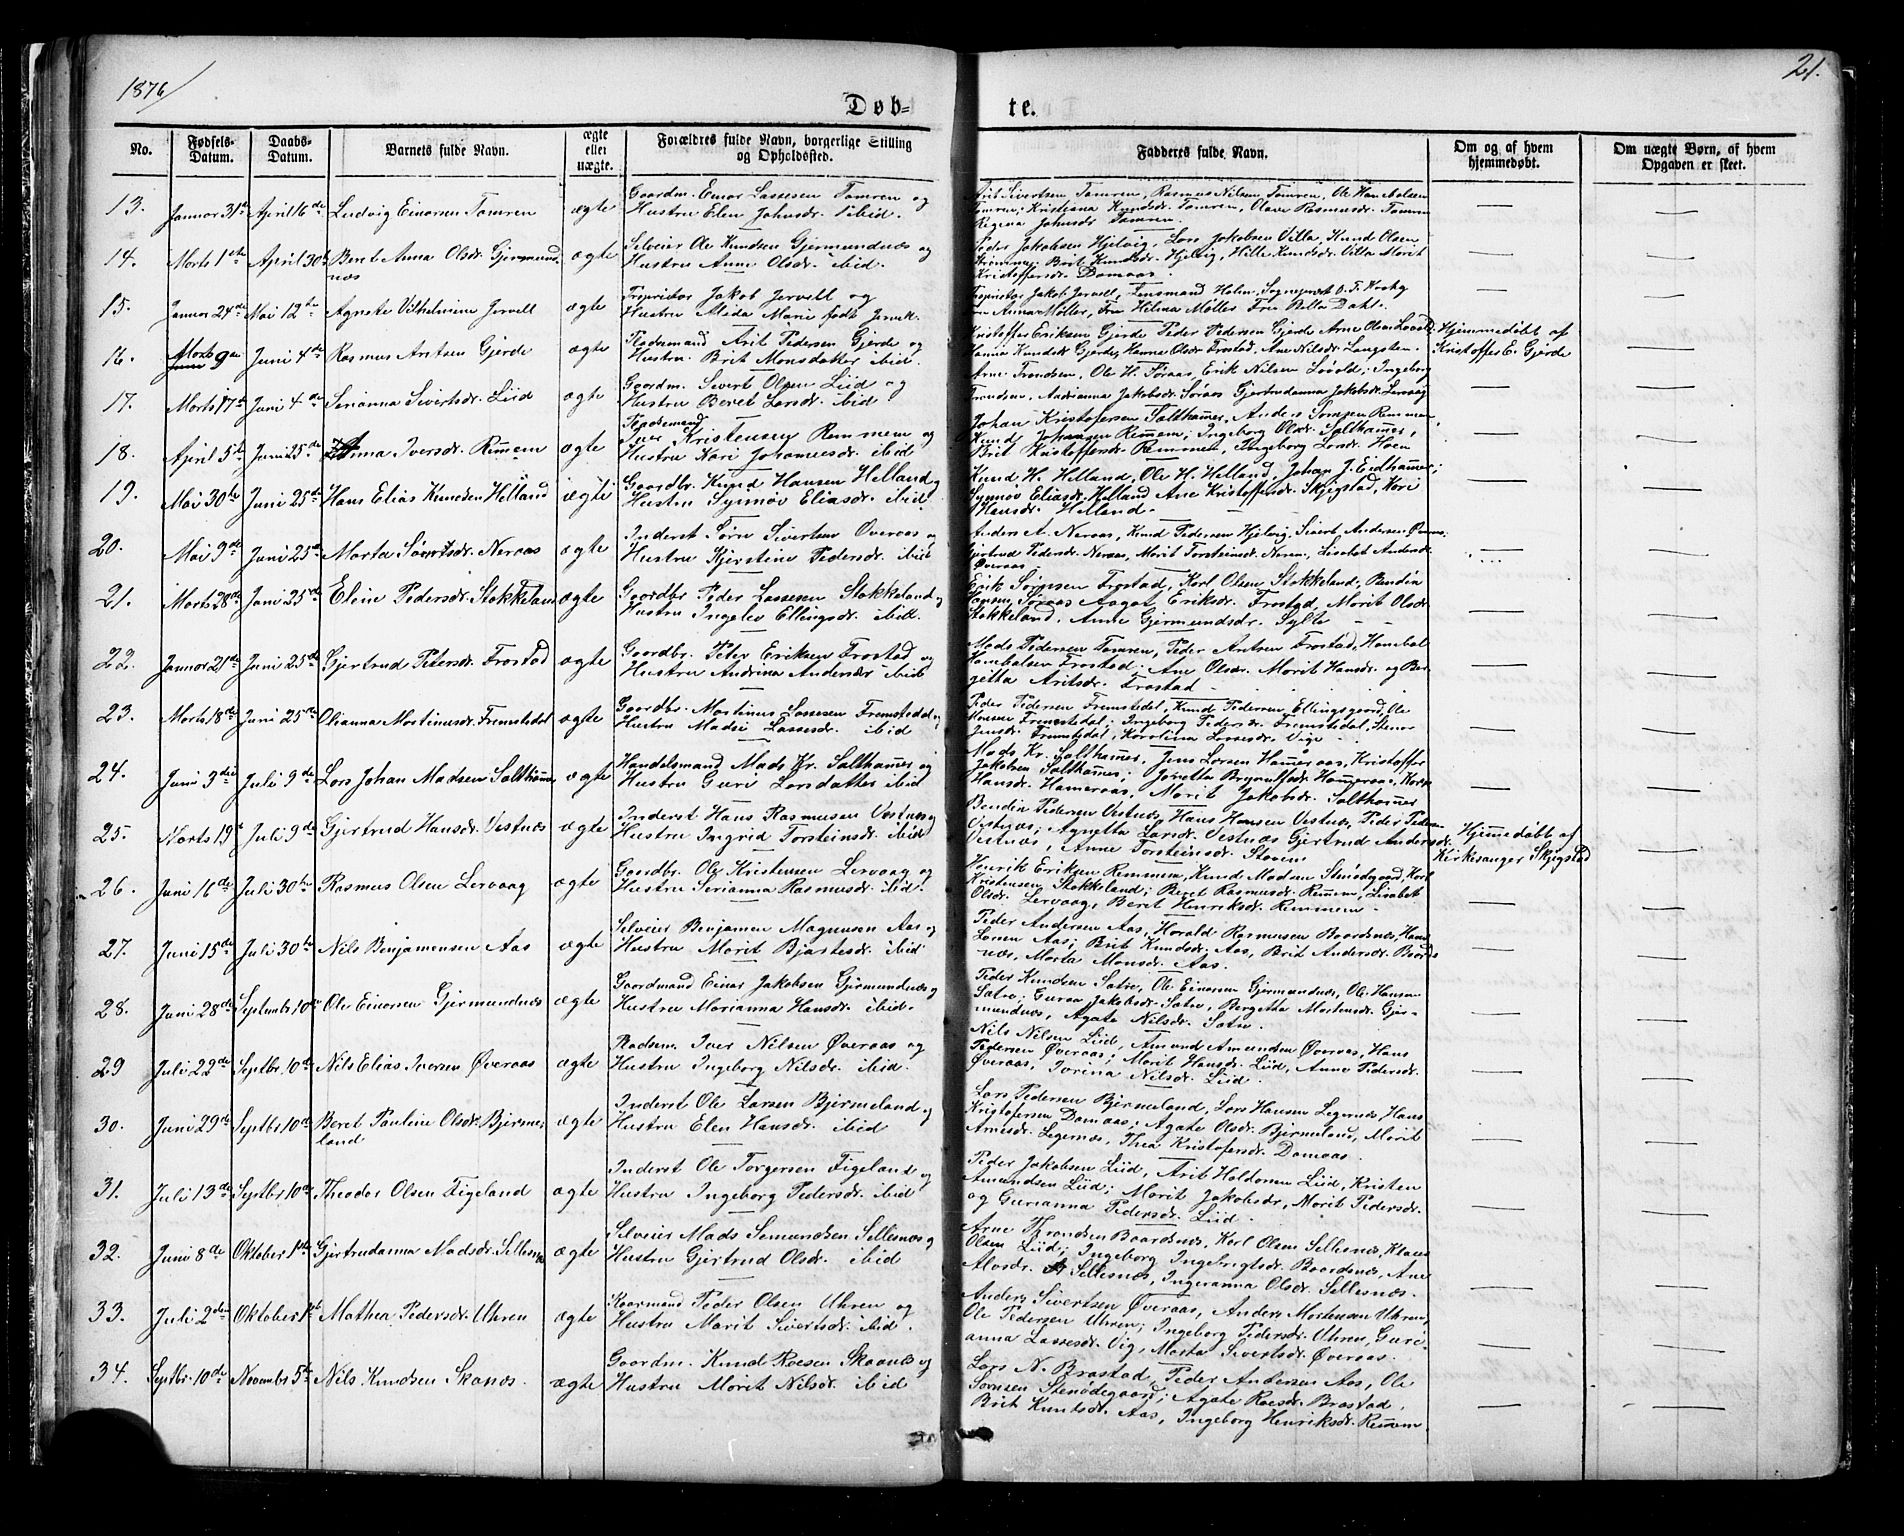 1876
21.
Døb-
te.
No.
Fødsels-
Datum.
Daabs-
Datum.
Barnets fulde Navn.
ægte
eller
uægte.
Forældres fulde Navn, borgerlige Stilling
og Opholdssted.
Fadderes fulde Navn.
Om og af hvem
hjemmedøbt.
Om uægte Børn, af hvem
Opgaven er skeet.
13. Januar 31te April 16de Ludvig Einarsen Tomren ægte
Gaardm. Einar Lassesen Tomren og
Hustru Elen Johnsdr. ibid.
Arit Sivertsen Tomren, Rasmus Nilsen Tomren, Ole Hansen
Tomren; Kristiana Knudsdr. Tomren, Olava Rasmusdr. Tomren
Regina Johnsdr. Tomren
14. Marts 1ste April 30te Beret Anna Olsdr. Gjermund-
næs
ægte
Selveier Ole Knudsen Gjermundnæs og
Hustru Anne Olsdr. ibid.
Peder Jakobsen Hjelvig, Lars Jakobsen Villa, Knud Olsen
Brit Knudsdr. Hjelvig, Hille Knudsdr. Villa Marit
Kristoffersdr. Damaas
15. Januar 24de Mai 12te Agnete Vilhelmine Jervell ægte
Proprietær Jakob Jervell og
Hustru Alida Marie født Jervell.
Proprietær Jakob Jervell, Lensmand Holm, Sogneprest O. F. Krohg
Anna Møller, Fru Helma Møller Fru Dahl.
16. Marts 9de Juni 4de Rasmus Aritsen Gjerde ægte
Pladsemand Arit Pedersen Gjerde og
Hustru Brit Monsdatter ibid.
Kristoffer Eriksen Gjerde Peder Pedersen Gjerde Arne Olsen
Hanna Knudsdr. Gjerde, Hanna Olsdr. Frostad, Ane Nilsdr. Langsten.
Hjemmedøbt af
Kristoffer E. Gjerde
17. Marts 17de Juni 4de Serianna Sivertsdr. Liid ægte
Gaardm. Sivert Olsen Liid og
Hustru Beret Larsdr. ibid
Arne Trondsen, Ole H. Søraas, Erik Nilsen Løvold; Ingeborg
Trondsen, Andrianna Jakobsdr. Søraas Gjertrudanna Jakobsdr. Lervaag
18. April 5te Juni 25de Anna Iversdr. Remmem ægte
Pladsemand
Iver Kristensen Remmem og
Hustru Kari Johannesdr. ibid
Johan Kristofersen Salthammer, Anders Remmem
Knud Johansen Remmem; Ingeborg Olsdr. Salthammer,
Brit Kristoffersdr. Remmem, Ingeborg Larsdr. Hoem
19. Mai 30te Juni 25de Hans Elias Knudsen Helland ægte
Gaardbr. Knud Hansen Helland og
Hustru Synnøv Eliasdr. ibid
Knud H. Helland, Ole H. Helland, Johan J. Eidhammer;
Synnøv Eliasdr. Helland Ane Kristoffersdr. Skjegstad, Kari
Hansdr. Helland.
20. Mai 9de Juni 25de Marta Sørensdr. Neraas ægte
Inderst Sørn Sivertsen Overaas og
Hustru Kjerstine Pedersdr. ibid
Anders A. Neraas, Knud Pedersen Hjelvig, Sivert Andersen
Gjertrud Pedersdr. Neraas, Marit Torsteinsdr. Neraas, Lisabet Andersdr.
Øveraas
21. Marts 28de Juni 25de Eline Pedersdr. Stokkeland ægte
Gaardbr. Peder Lassesen Stokkeland og
Hustru Ingelev Ellingsdr. ibid.
Erik Sørnsen Frostad, Karl Olsen Stokkeland, Bendia
Hansen Søraas Aagot Eriksdr. Frostad, Marit Olsdr.
Stokkeland, Anne Gjermundsdr. Sylte
22. Januar 21de Juni 25de Gjertrud Petersdr. Frostad ægte
Gaardbr. Peter Eriksen Frostad og
Hustru Andrina Andersdr. ibid
Mads Pedersen Tomren, Peder Antsen Frostad, Hanibal
Hanibalsen Frostad. Ane Olsdr. Marit Hansdr. og Ber-
getta Aritsdr. Frostad
23. Marts 18de Juni 25de Olianna Martinusdr. Fremstedal ægte
Gaardbr. Martinus Lassesen Fremstedal og
Hustru Madli Lassesdr. ibid
Peder Pedersen Fremstedal, Knud Pedersen Ellingsgaard, Ole
Hansen Fremstedal; Ingeborg Pedersdr. Fremstedal,
Jensdr. Fremstedal, Karolina Lassesdr. Vige
24. Juni 3die Juli 9de Lars Johan Madsen Salthammer ægte
Handelsmand Mads Kr. Salthammer og
Hustru Guri Larsdatter ibid
Mads Kr. Salthammer, Jens Larsen Hammeraas, Kristoffer
Jakobsen Salthammer; Jonetta Brynulfsdr. Hammeraas, Karen
Hansdr. Hameraas, Marit Jakobsdr. Salthammer
25. Marts 19de Juli 9de Gjertrud Hansdr. Vestnæs ægte
Inderst Hans Rasmusen Vestnæs og
Hustru Ingrid Torsteinsdr. ibid
Bendin Pedersen Vestnæs, Hans Hansen Vestnæs, Peder Peder-
Vestnæs; Agnetta Larsdr. Vestnæs Gjertrud Andersdr.
Vestnæs, Anne Torsteinsdr. Stoven
Hjemmedøbt af
Kirkesanger Skjegstad
26. Juni 16de Juli 30te Rasmus Olsen Lervaag ægte
Gaardbr. Ole Kristensen Lervaag og
Hustru Serianna Rasmusdr. ibid.
Henrik Eriksen Remmem, Knud Madsen Stenødegaard, Karl
Kristensen Stokkeland; Beret Rasmusdr. Remem, Lisabet
Olsdr. Lervaag, Beret Henriksdr. Remmem
27. Juni 15de Juli 30te Nils Benjaminsen Aas ægte
Selveier Benjamin Magnusen Aas og
Hustru Marit Bjartesdr. ibid
Peder Andersen Aas, Harald Rasmusen Baardsnæs, Hans
Larsen Aas; Brit Knudsdr. Aas, Brit Andersdr. Baards-
næs, Marta Monsdr. Aas.
28. Juni 28de Septembr 10de Ole Einarsen Gjermundnæs ægte
Gaardmand Einar Jakobsen Gjermundnæs og
Hustru Marianna Hansdr. ibid.
Peder Knudsen Satre, Ole Einarsen Gjermundnæs, Ole Hansen
Satre; Guraa Jakobsdr. Satre, Bergetta Mortensdr. Gjer-
mundnæs, Agate Nilsdr. Satre.
29 Juli 22de Septbr. 10de Nils Elias Iversen Øveraas ægte
Pladsem. Iver Nilsen Øveraas og
Hustru Ingeborg Nilsdr. ibid.
Nils Nilsen Liid, Amund Amundsen Øveraas, Hans
Pedersen Øveraas; Marit Hansdr. Liid, Anne Pedersdr.
Øveraas, Jorina Nilsdr. Liid.
30. Juni 29de Septbr 10de Beret Pauline Olsdr. Bjerme-
land
ægte
Inderst Ole Larsen Bjermeland og
Hustru Elen Hansdr. ibid
Lars Pedersen Bjermeland, Lars Hansen Legernæs, Hans
Kristofersen Damaas; Agate Olsdr. Bjermeland, Marit
Arnesdr. Legernæs, Thea Kristofersdr. Damaas.
31. Juli 13de Septbr 10de Theodor Olsen Figeland ægte
Inderst Ole Torgersen Figeland og
Hustru Ingeborg Pedersdr. ibid
Peder Jakobsen Liid, Arit Haldorsen Liid, Kristen
Amundsen Liid; Marit Jakobsdr, Marit Pedersdr.
og Gurianna Pedersdr. Liid.
32. Juni 8de Oktober 1ste Gjertrudanna Madsdr. Sellesnæs ægte
Selveier Mads Semundsen Sellesnæs og
Hustru Gjertrud Olsdr. ibid
Arne Throndsen Baardsnæs, Karl Olsen Sellesnæs, Klaus
Olsen Liid; Ingeborg Ingebrigtsdr. Baardsnæs, Ane
Alvsdr. Sellesnæs, Ingeranna Olsdr. Sellesnæs.
33. Juli 2den Oktober 1ste Mathea Pedersdr. Uhren ægte
Kaarmand Peder Olsen Uhren og
Hustru Marit Sivertsdr. ibid.
Anders Sivertsen Øveraas, Anders Mortensen Uhren,
Ole Pedersen Uhren; Ingeborg Pedersdr. Uhren, Guri-
anna Lassesdr. Vig, Marta Sivertsdr. Øveraas.
34. Septbr. 10de Novembr 5te Nils Knudsen Skanæs. ægte
Gaardm. Knud Roesen Skaanæs og
Hustru Marit Nilsdr. ibid
Lars N. Brastad, Peder Andersen Aas, Ole
Sørnsen Stenødegaard; Agate Roesdr. Brastad,
Brit Knutsdr. Aas, Ingeborg Henriksdr. Remem